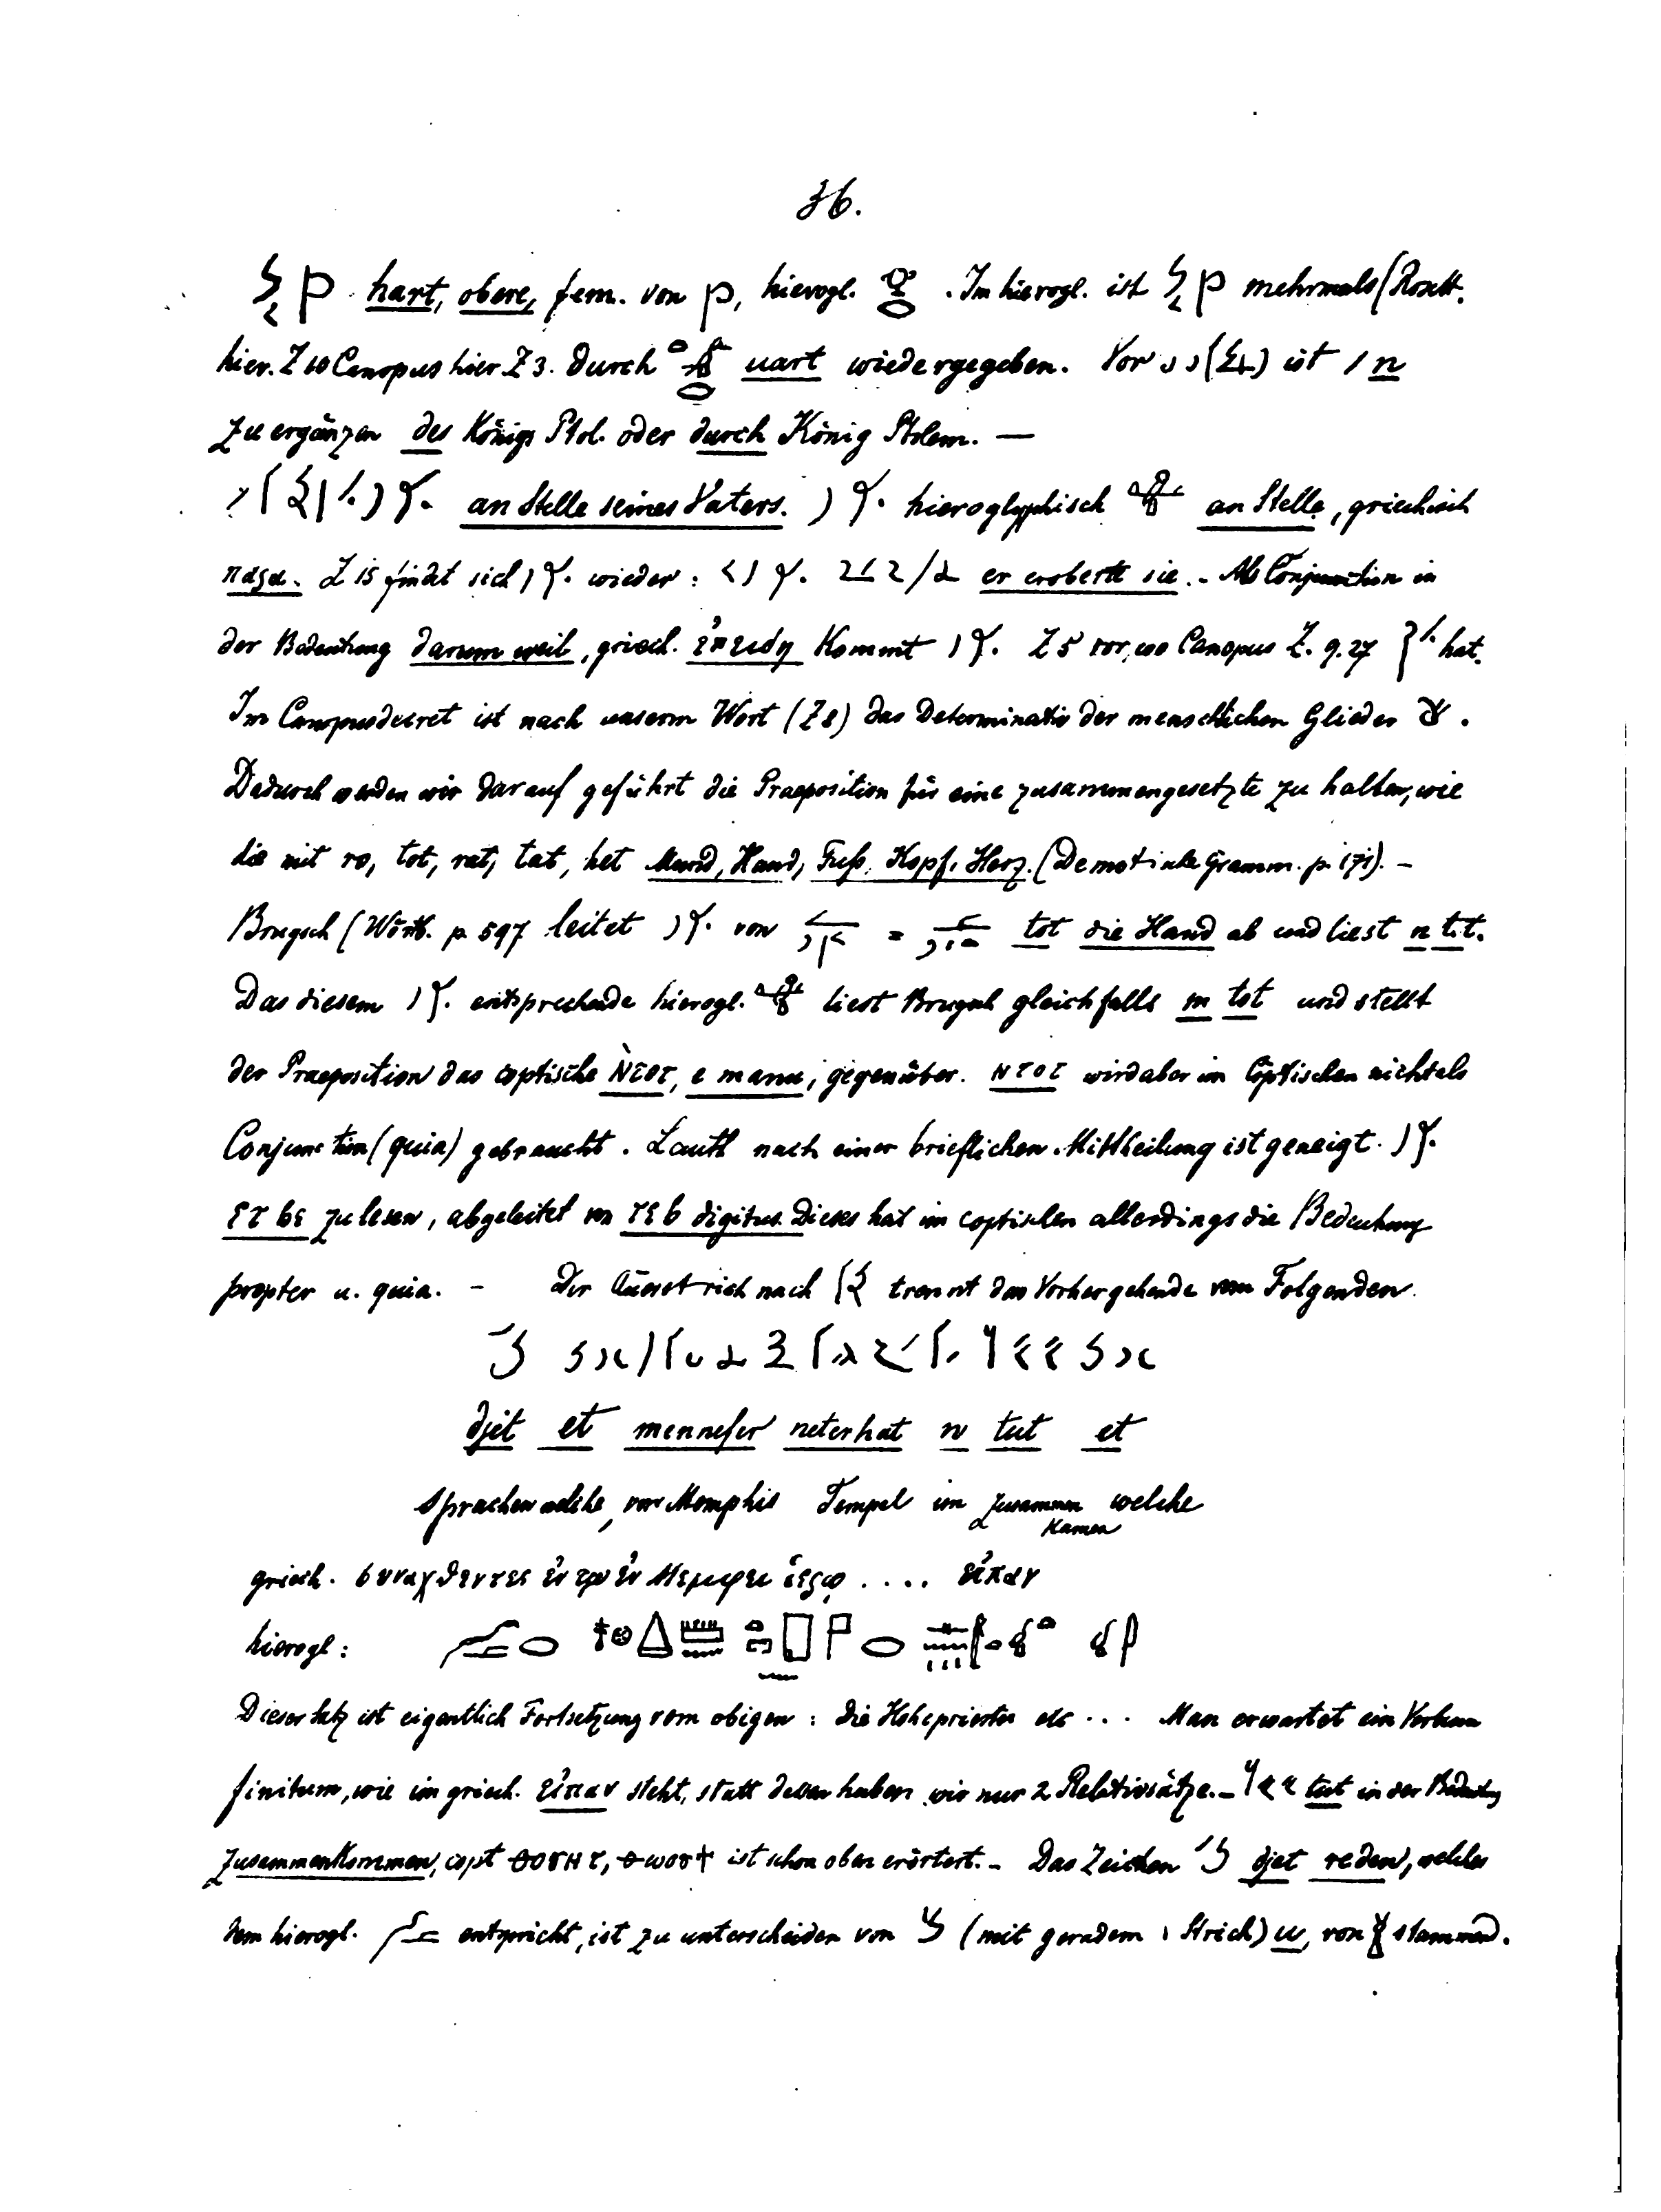 36.
hart, obere, fem. von , hierogl. . Im hierogl. ist mehrmals (Rosett.
hier. Z 10 Canopus hier Z 3. durch uart wiedergegeben. Vor ist n
zu ergänzen des Königs Ptol. oder durch König Ptolem. —
an Stelle seines Vaters. hieroglyphisch an Stelle, griechisch
παρα. Z 15 findet sich wieder: er eroberte sie. - Als Conjunction in
der Bedeutung darum weil, griech. ἐπειδη kommt Z 5 vor, wo Canopus Z. 9. 27 hat.
Im Canopusdecret ist nach unserm Wort (Z 8) das Determinativ der menschlichen Glieder .
Dadurch werden wir darauf geführt die Praeposition für eine zusammengesetzte zu halten, wie
die mit ro, tot, rat, tat, het Mund, Hand, Fuß, Kopf, Herz. (Demotische Gramm. p. 171). -
Brugsch (Wörtb. p. 597 leitet von = tot die Hand ab und liest n t.t.
Das diesem entsprechende hierogl. liest Brugsch gleichfalls m tot und stellt
der Praeposition das coptische ⲚⲦⲞⲦ, e manu, gegenüber. ⲚⲦⲞⲦ wird aber im Coptischen nicht als
Conjunction (quia) gebraucht. Lauth nach einer brieflichen Mittheilung ist geneigt
ⲉⲧⲃⲉ zu lesen, abgeleitet von ⲧⲉⲃ digitus. Dieses hat im coptischen allerdings die Bedeutung
propter u. quia. - Der Querstrich nach trennt das Vorhergehende vom Folgenden.
djet et mennefer neterhat n tut et
Sprachen welche, von Memphis Tempel im zusammen welche
kamen
griech. συναχθεντες ἐν τῳ ἐν Μεμφει ἱερῳ .... εἶπαν
hierogl:
Dieser Satz ist eigentlich Fortsetzung vom obigen: die Hohepriester etc ... Man erwartet ein Verbum
finitum, wie im griech. εἶπαν steht, statt dessen haben wir nur 2 Relativsätze. - tut in der Bedeutung
zusammenkommen, copt ⲑⲟⲩⲏⲧ, ⲑⲱⲟⲩϯ ist schon oben erörtert. - Das Zeichen djet reden, welches
dem hierogl. entspricht, ist zu unterscheiden von (mit geradem Strich) u, von stammend.